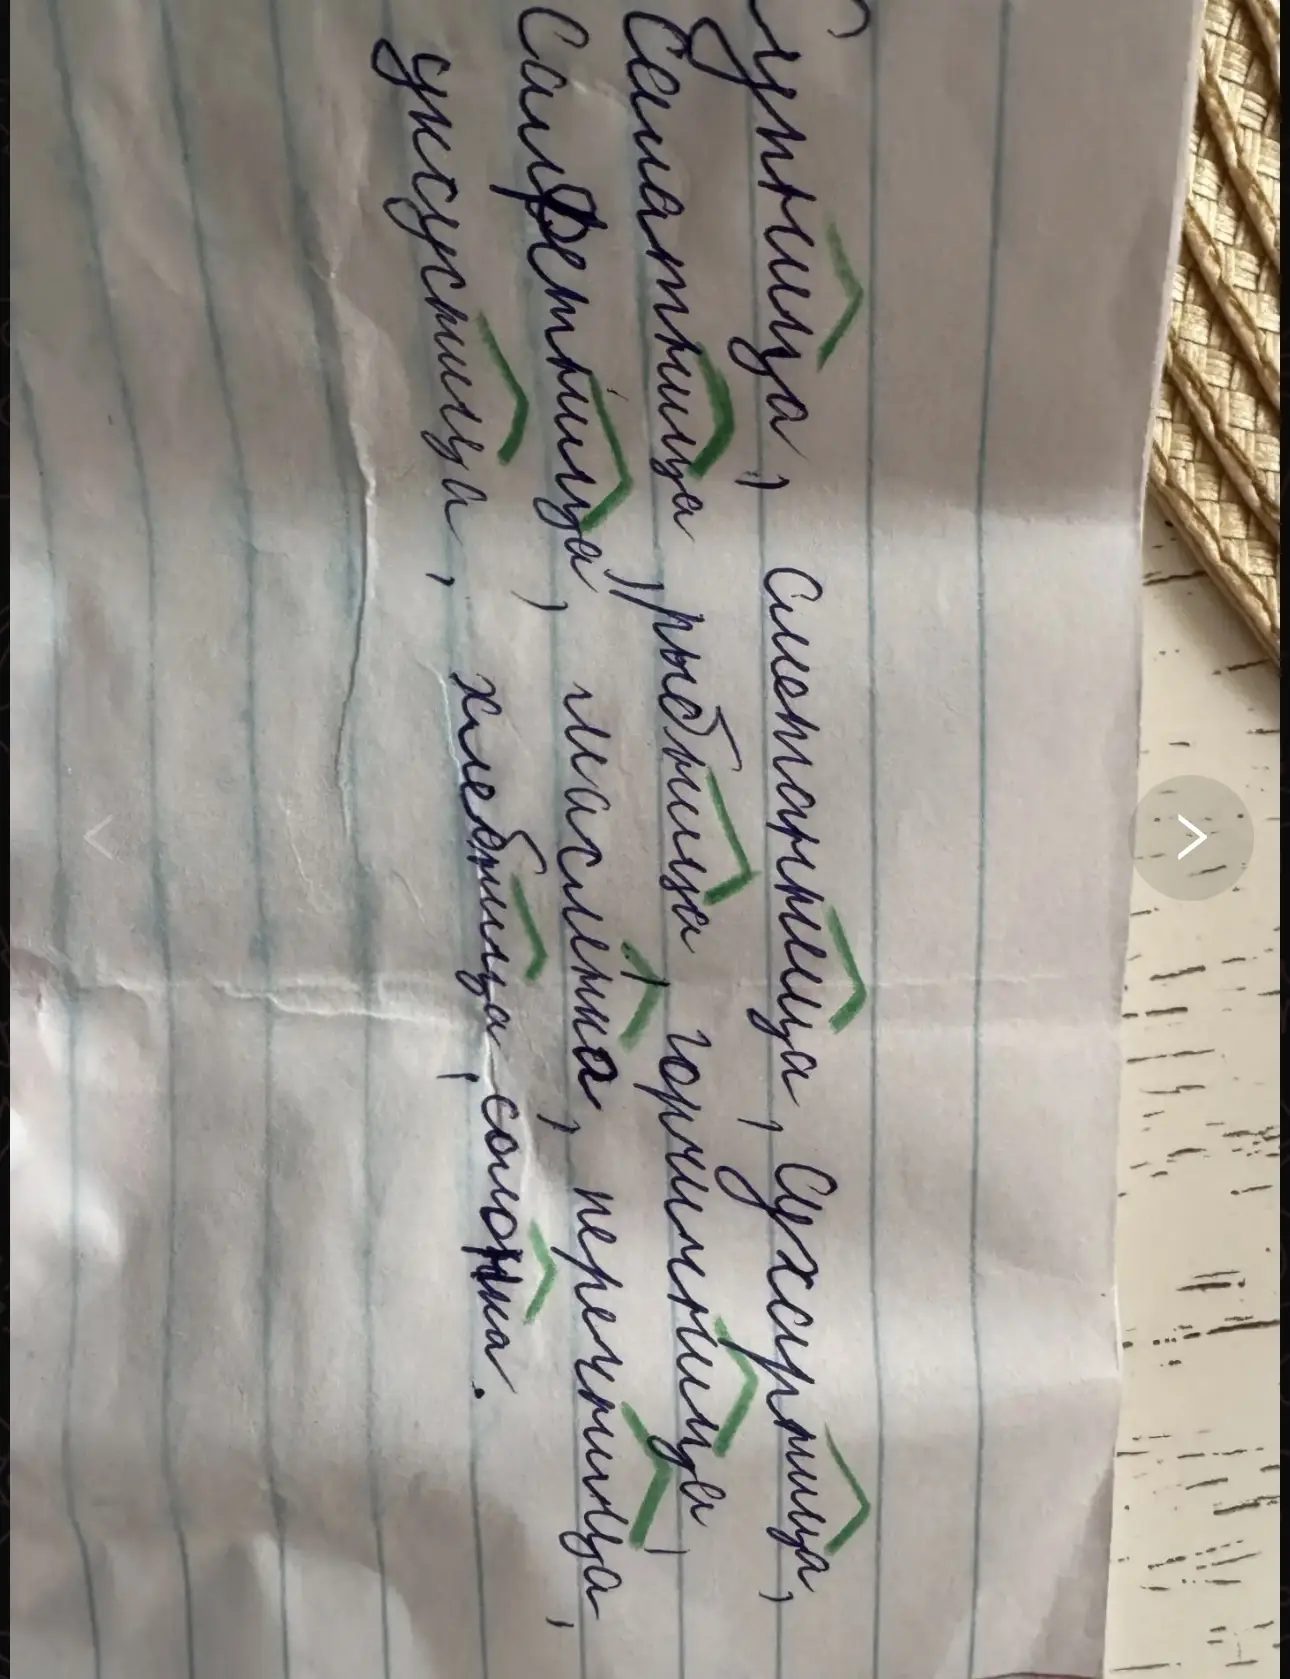 Супница, Сметанница, Сухарница,
Салатница, рыбница, горчичница,
Салфетница, маслёнка, перечница,
уксусница, хлебница, солонка.